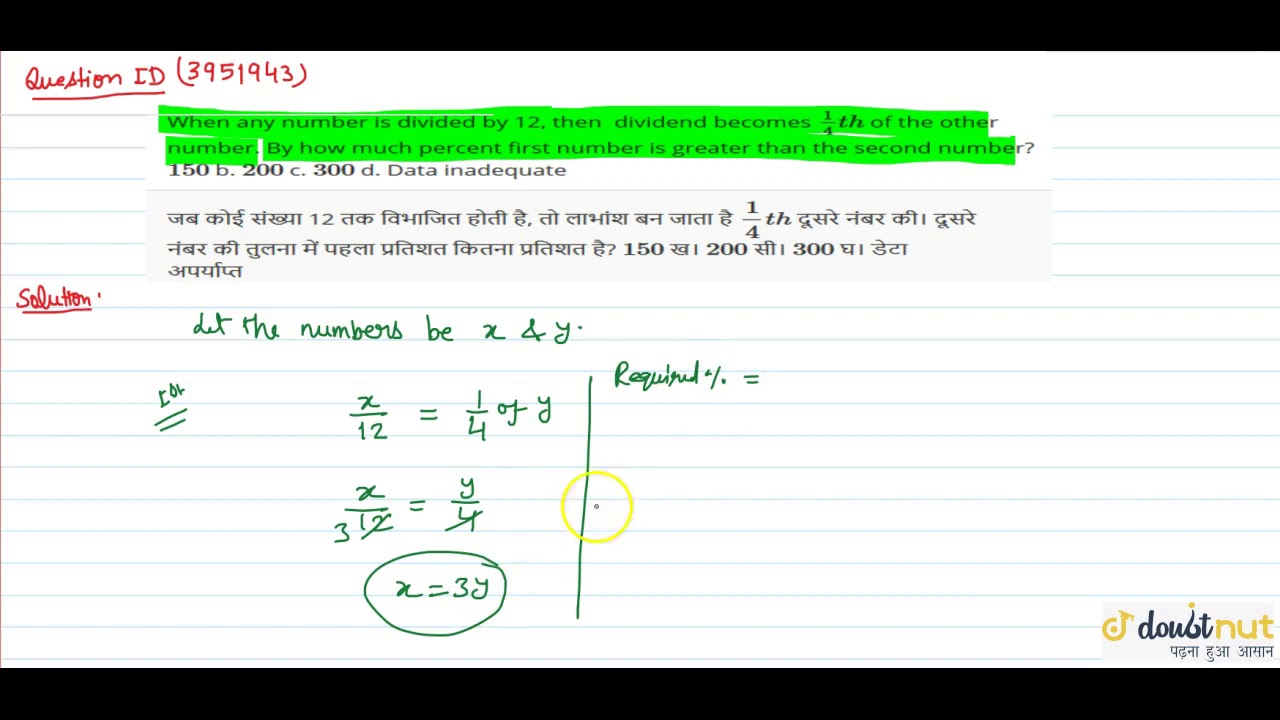 Question ID (3951943)
When any number is divided by 12, then dividend becomes 1/4 th of the other
number. By how much percent first number is greater than the second number?
150 b. 200 c. 300 d. Data inadequate
जब कोई संख्या 12 तक विभाजित होती है, तो लाभांश बन जाता है 1/4 th दूसरे नंबर की। दूसरे
नंबर की तुलना में पहला प्रतिशत कितना प्रतिशत है? 150 ख। 200 सी। 300 घ। डेटा
अपर्याप्त
Solution.
Let the numbers be x & y.
Required % =
x/12 = 1/4 of y
3 x/12 = y/4
x = 3y
doubtnut
पढ़ना हुआ आसान